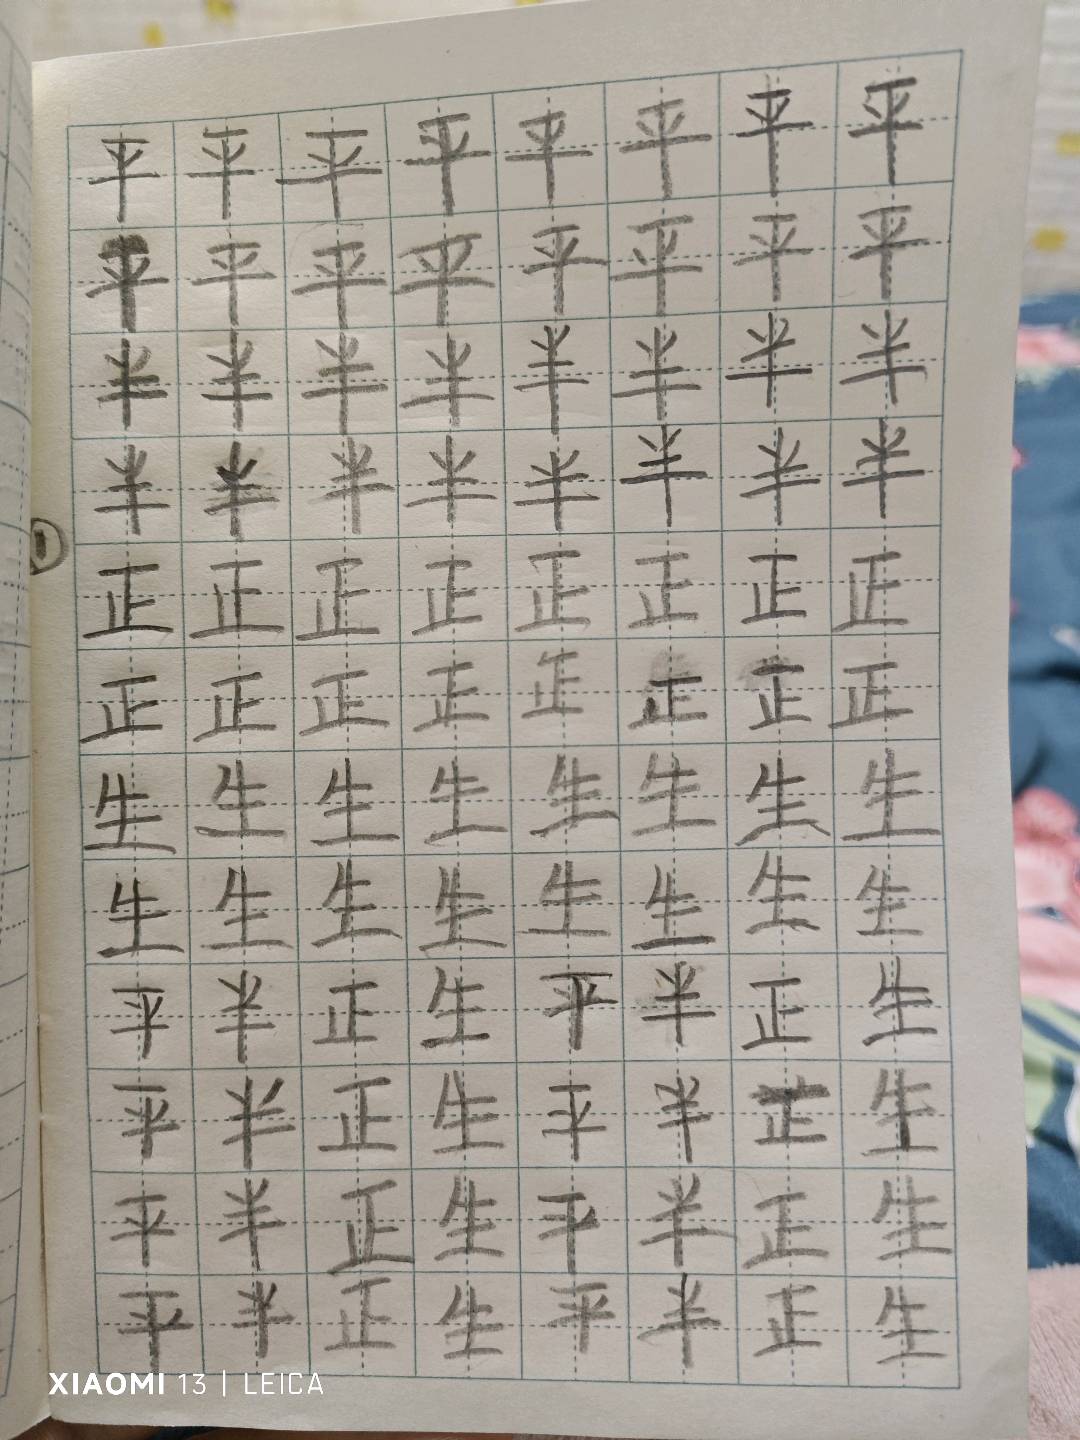 平平平平平平平平
平平平平平平平平
半半半半半半半半
半半半半半半半半
正正正正正正正正
正正正正正正正正
生生生生生生生生
生生生生生生生生
平半正生平半正生
平半正生平半正生
平半正生平半正生
平半正生平半正生
XIAOMI 13 | LEICA